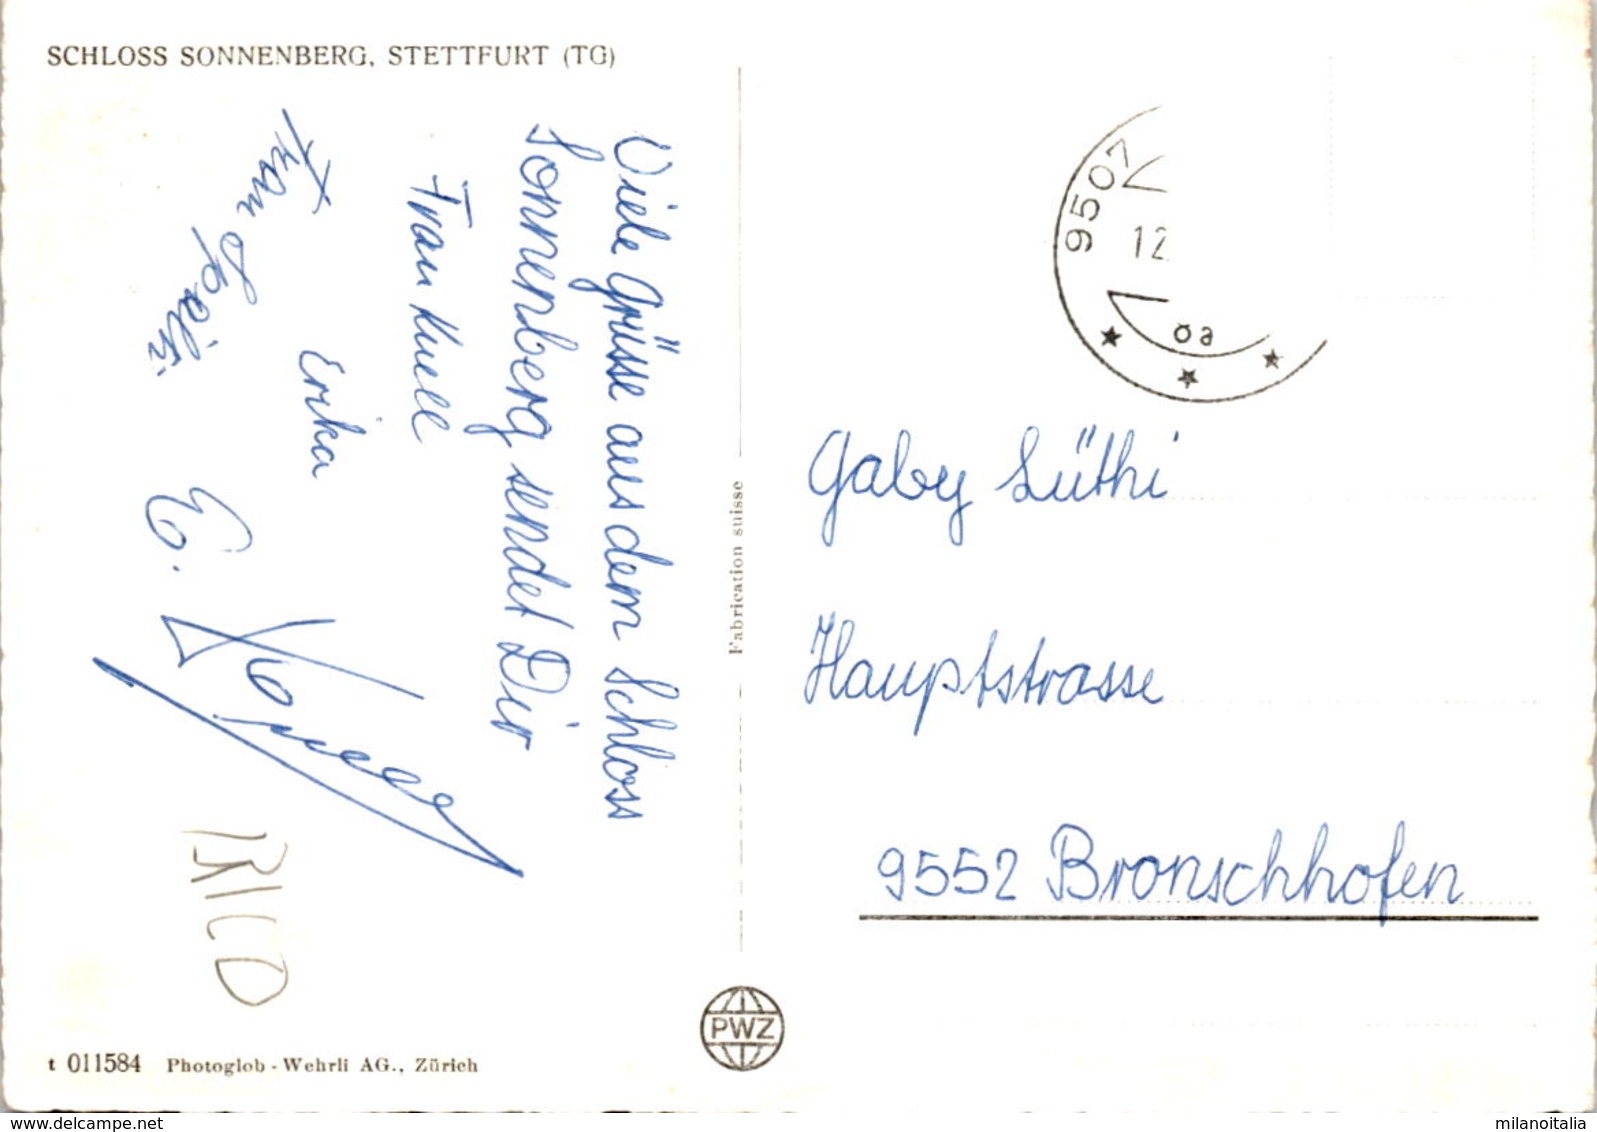 SCHLOSS SONNENBERG, STETTFURT (TG)
Viele Grüsse aus dem Schloss
Sonnenberg sendet Dir
Frau
Erika
Frau
E.
RICO
Fabrication suisse
9507
12
öa
Gaby Lüthi
Hauptstrasse
9552 Bronschhofen
PWZ
t 011584 Photoglob - Wehrli AG., Zürich
www.delcampe.net
milanoitalia